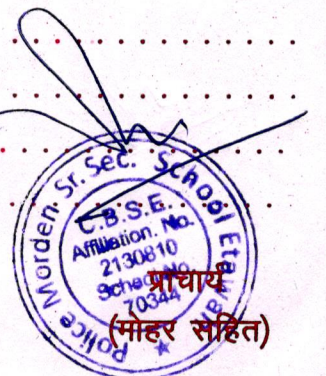 Police Morden Sr. Sec. School Etawah
C.B.S.E.
Affiliation. No.
2130810
School No.
70344
प्राचार्य
(मोहर सहित)